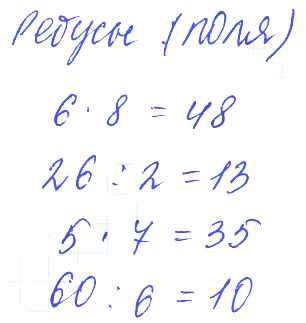 Ребусы (поля)
6 · 8 = 48
26 : 2 = 13
5 · 7 = 35
60 : 6 = 10